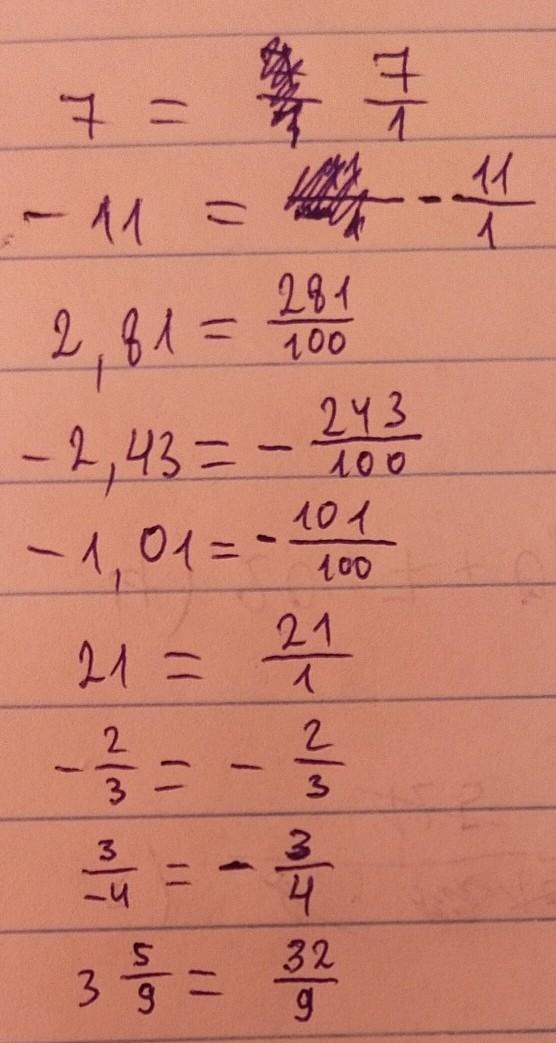 7 = 7/1
-11 = -11/1
2,81 = 281/100
-2,43 = -243/100
-1,01 = -101/100
21 = 21/1
-2/3 = -2/3
3/-4 = -3/4
3 5/9 = 32/9